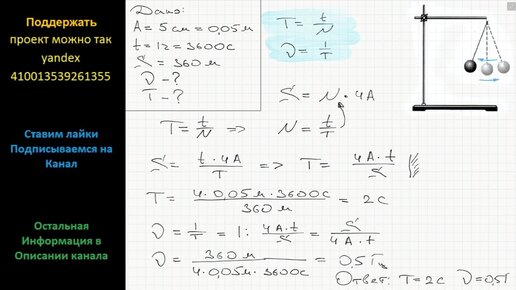 Поддержать
проект можно так
yandex
410013539261355
Ставим лайки
Подписываемся на
Канал
Остальная
Информация в
Описании канала
Дано:
A = 5 см = 0,05 м
t = 1 г = 3600 с
S = 360 м
ν - ?
T - ?
T = t/N
ν = 1/T
S = N · 4A
T = t/N => N = t/T
S = t · 4A / T => T = 4A · t / S
T = 4 · 0,05 м · 3600 с / 360 м = 2 с
ν = 1/T = 1 : 4A · t / S = S / 4A · t
ν = 360 м / 4 · 0,05 м · 3600 с = 0,5 Гц
Ответ: T = 2 с ν = 0,5 Г